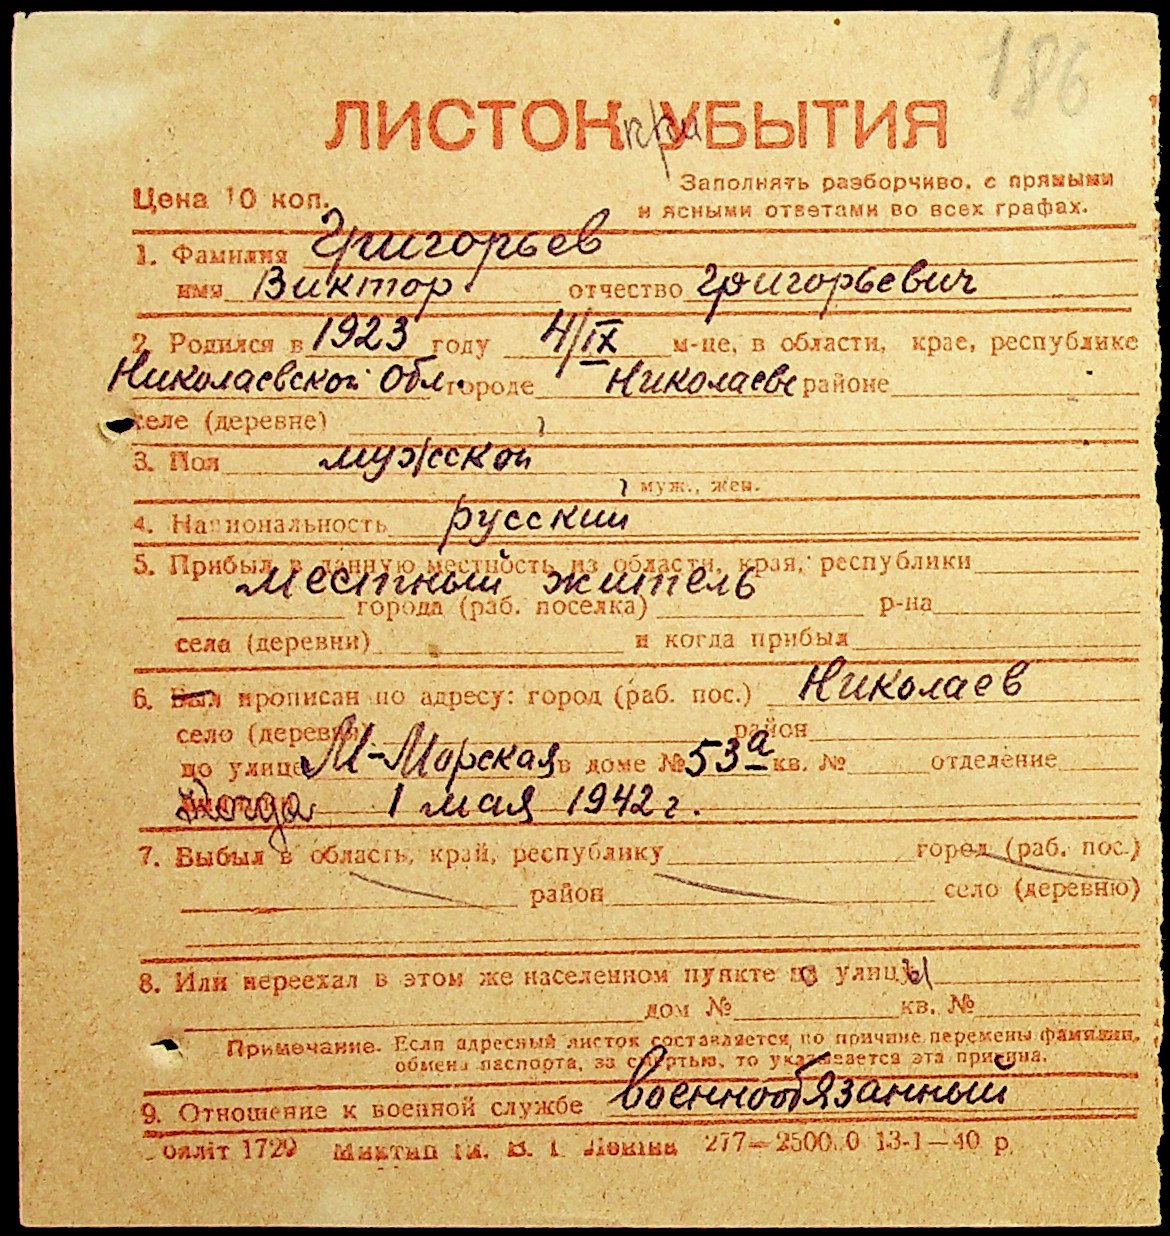 186
ЛИСТОК при УБЫТИЯ
Цена 10 коп.
Заполнять разборчиво, с прямыми
и ясными ответами во всех графах.
1. Фамилия Григорьев
имя Виктор отчество Григорьевич
2. Родился в 1923 году 4/IX м-це, в области, крае, республике
Николаевской обл. городе Николаеве районе
селе (деревне)
3. Пол мужской
муж., жен.
4. Национальность русский
5. Прибыл в данную местность из области, края, республики
местный житель
города (раб. поселка) р-на
села (деревни) и когда прибыл
6. Был прописан по адресу: город (раб. пос.) Николаев
село (деревня) район
по улице М-Морская в доме № 53а кв. № отделение
Когда 1 мая 1942 г.
7. Выбыл в область, край, республику город (раб. пос.)
район село (деревню)
8. Или переехал в этом же населенном пункте с улицы
дом № кв. №
Примечание. Если адресный листок составляется по причине перемены фамилии,
обмена паспорта, за смертью, то указывается эта причина.
9. Отношение к военной службе военнообязанный
1729 277—2500 0 13-1—40 р.